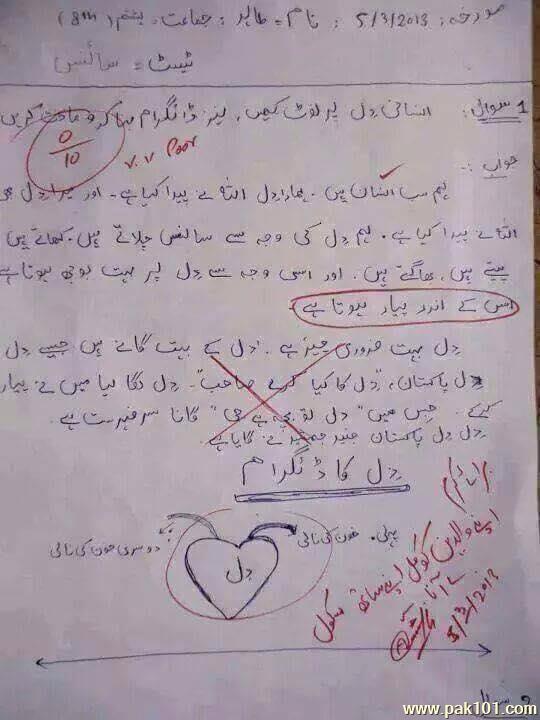 مورخہ: 5/3/2013 ; نام = طاہر : جماعت = ہشتم (8th)
ٹیسٹ = سائنس
سوال 1: انسانی دل پر نوٹ لکھیں، نیز ڈائگرام بنا کر وضاحت کریں
0/10
v.v Poor
جواب :-
ہم سب انسان ہیں۔ ہمارا دل اللہ نے پیدا کیا ہے۔ اور میرا دل بھی
اللہ نے پیدا کیا ہے۔ ہم دل کی وجہ سے سانس چلاتے ہیں۔ کھاتے ہیں
پیتے ہیں، بھاگتے ہیں۔ اور اسی وجہ سے دل پر بہت بوجھ ہوتا ہے
اس کے اندر پیار ہوتا ہے
دل بہت ضروری چیز ہے۔ دل کے بہت گانے ہیں جیسے دل
دل پاکستان، "دل کا کیا کرے صاحب"۔ دل لگا لیا میں نے پیار
کرکے۔ جس میں "دل تو بچہ ہے جی" گانا سرفہرست ہے۔
دل دل پاکستان جنید جمشید نے گایا ہے
دل کا ڈائگرام
پہلی خون کی نالی
دوسری خون کی نالی
دل
اپنے والدین کو کل اپنے ساتھ سکول
لے آنا
5/3/2013
www.pak101.com